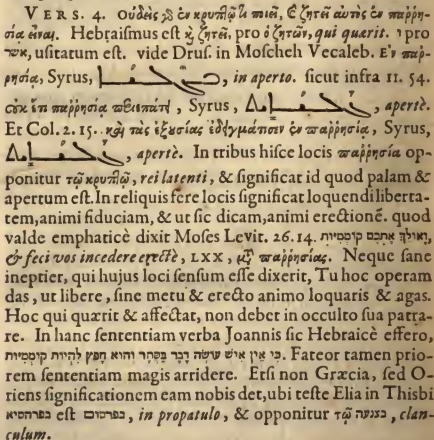 VERS. 4. Οὐδεὶς γδ ἐν κρυπτῷ τὶ ποιεῖ, & ζητεῖ αὐτὸς ἐν παῤῥη-
σίᾳ εἶναι. Hebraismus est κ̀ ζητεῖ, pro ὁ ζητῶν, qui quærit. ו pro
אשר, usitatum est. vide Drus. in Moscheh Vecaleb. Ἐν παῤ-
ρησίᾳ, Syrus, , in aperto. sicut infra 11. 54.
οὐκ ἔτι παῤῥησίᾳ περιεπάτει, Syrus, , apertè.
Et Col. 2. 15. καὶ τὰς ἐξουσίας ἐδειγμάτισεν ἐν παῤῥησίᾳ, Syrus,
, apertè. In tribus hisce locis παῤῥησία op-
ponitur τῷ κρυπτῷ, rei latenti, & significat id quod palam &
apertum est. In reliquis fere locis significat loquendi liberta-
tem, animi fiduciam, & ut sic dicam, animi erectionē. quod
valde emphaticè dixit Moses Levit. 26. 14. ואולך אתכם קוממיות,
& feci vos incedere erectè, LXX, μῇ παῤῥησίας. Neque sane
ineptier, qui hujus loci sensum esse dixerit, Tu hoc operam
das, ut libere, sine metu & erecto animo loquaris & agas.
Hoc qui quærit & affectat, non debet in occulto sua patra-
re. In hanc sententiam verba Joannis sic Hebraicè effero,
כי אין איש עושה דבר בסתר והוא חפץ להיות קוממיות. Fateor tamen prio-
rem sententiam magis arridere. Etsi non Græcia, sed O-
riens significationem eam nobis det, ubi teste Elia in Thisbi
בפרהסיא est בפרסום, in propatulo, & opponitur τῷ בצנעה, clan-
culum.